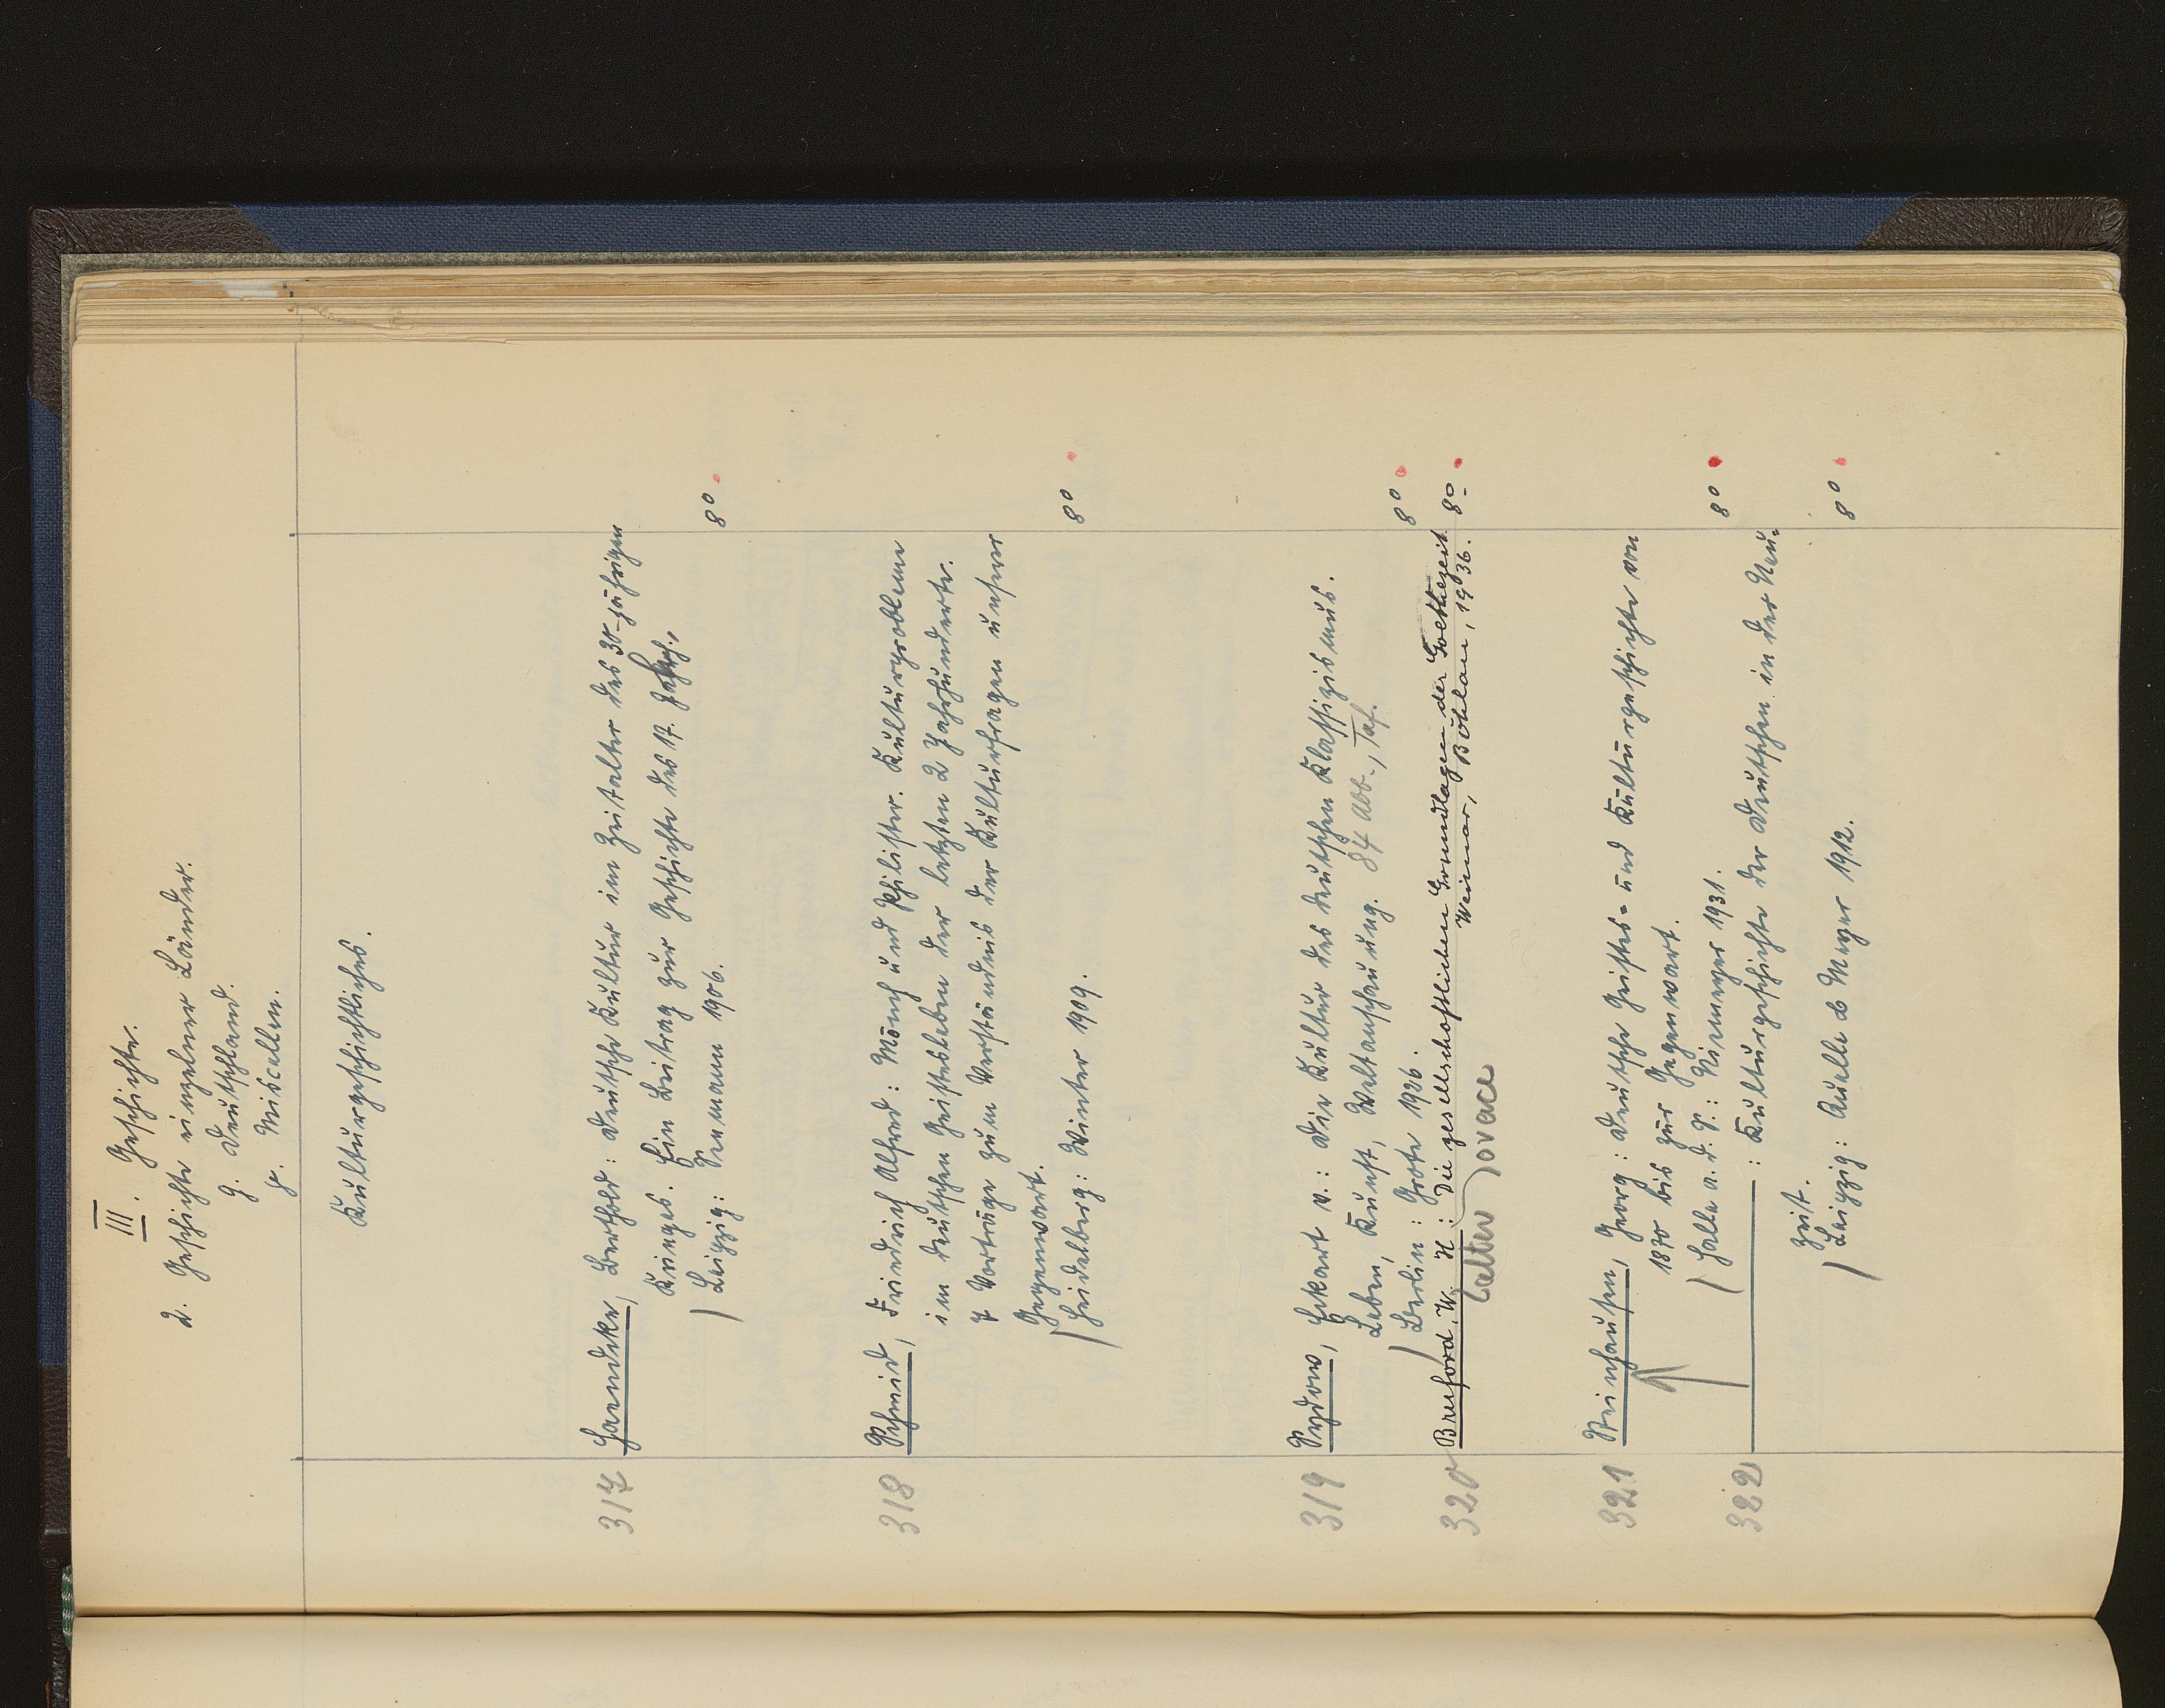 III. Geschichte.
2. Geschichte einzelner Länder.
g. Deutschland.
Miscellen.
Kulturgeschichtliches.
317 Haendcke, Berthold: Deutsche Kultur im Zeitalter des 30-jährigen
Krieges. Ein Beitrag zur Geschichte des 17. Jahrh.
Leipzig: Seemann 1906. 8°
318 Schmid, Friedrich Alfred: Mönch und Philister. Kulturprobleme
im deutschen Geistesleben der letzten 2 Jahrhunderte.
7 Vorträge zum Verständnis der Kulturfragen unserer
Gegenwart.
Heidelberg: Winter 1909. 8°
319 Sydow, Eckart v.: Die Kultur des deutschen Klassizismus.
Leben, Kunst, Weltanschauung. 84 Abb., Taf.
Berlin: Grote 1926. 8°
320 Bruford, W. H: Die gesellschaftlichen Grundlagen der Goethezeit
Weimar, Böhlau, 1936. 8°
321 Steinhausen, Georg: Deutsche Geistes- und Kulturgeschichte von
1870 bis zur Gegenwart.
Halle a. d. S.: Niemeyer 1931. 8°
322 : Kulturgeschichte der Deutschen in der Neu-
zeit.
Leipzig: Quelle & Meyer 1912. 8°